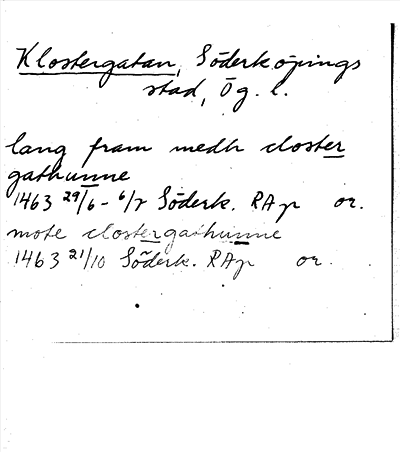 Klostergatan, Söderköpings
stad, Ög. l.
lang fram medh closter
gathunne
1463 29/6 - 6/7 Söderk. RAp or.
mote clostergathunne
1463 21/10 Söderk. RAp or.